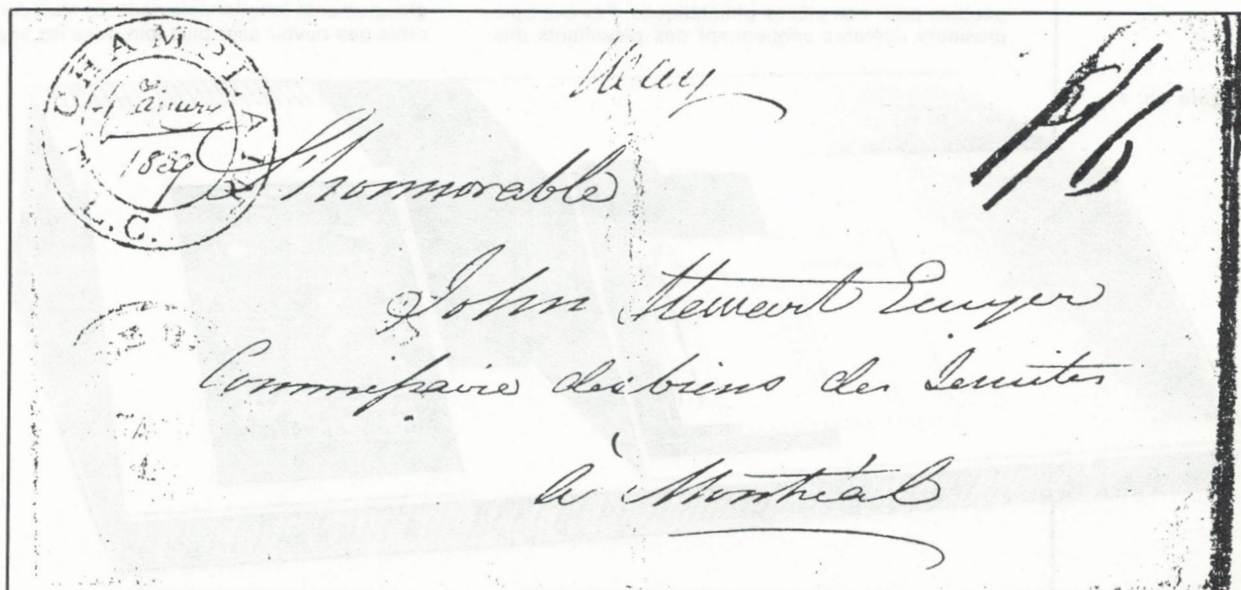 CHAMPLAIN
L.C.
Janvr
1839
Way
1/6
à L'honnorable
John Stewart Ecuyer
Commissaire des biens des Jesuites
à Montréal
A
4